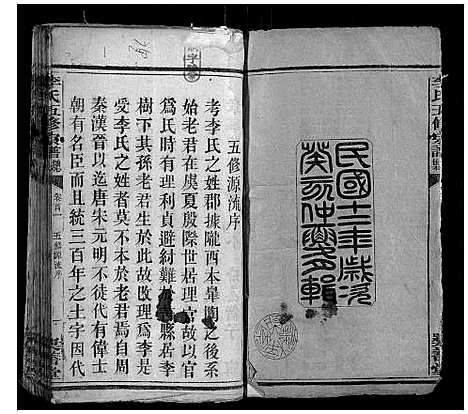 李氏五修宗譜
民國十二年歲次
癸亥仲興多輯
五修源流序
考李氏之姓郡據隴西本皐陶之後系
始老君在虞夏殷際世居理官故以官
爲氏時有理利貞避紂難於 縣李
樹下其孫老君生於此故改理爲李是
受李氏之姓者莫不本於老君焉自周
秦漢晉以迄唐宋元明不徒代有偉士
朝有名臣而且統三百年之土宇因代
李氏五修宗譜
卷首
五修源流序